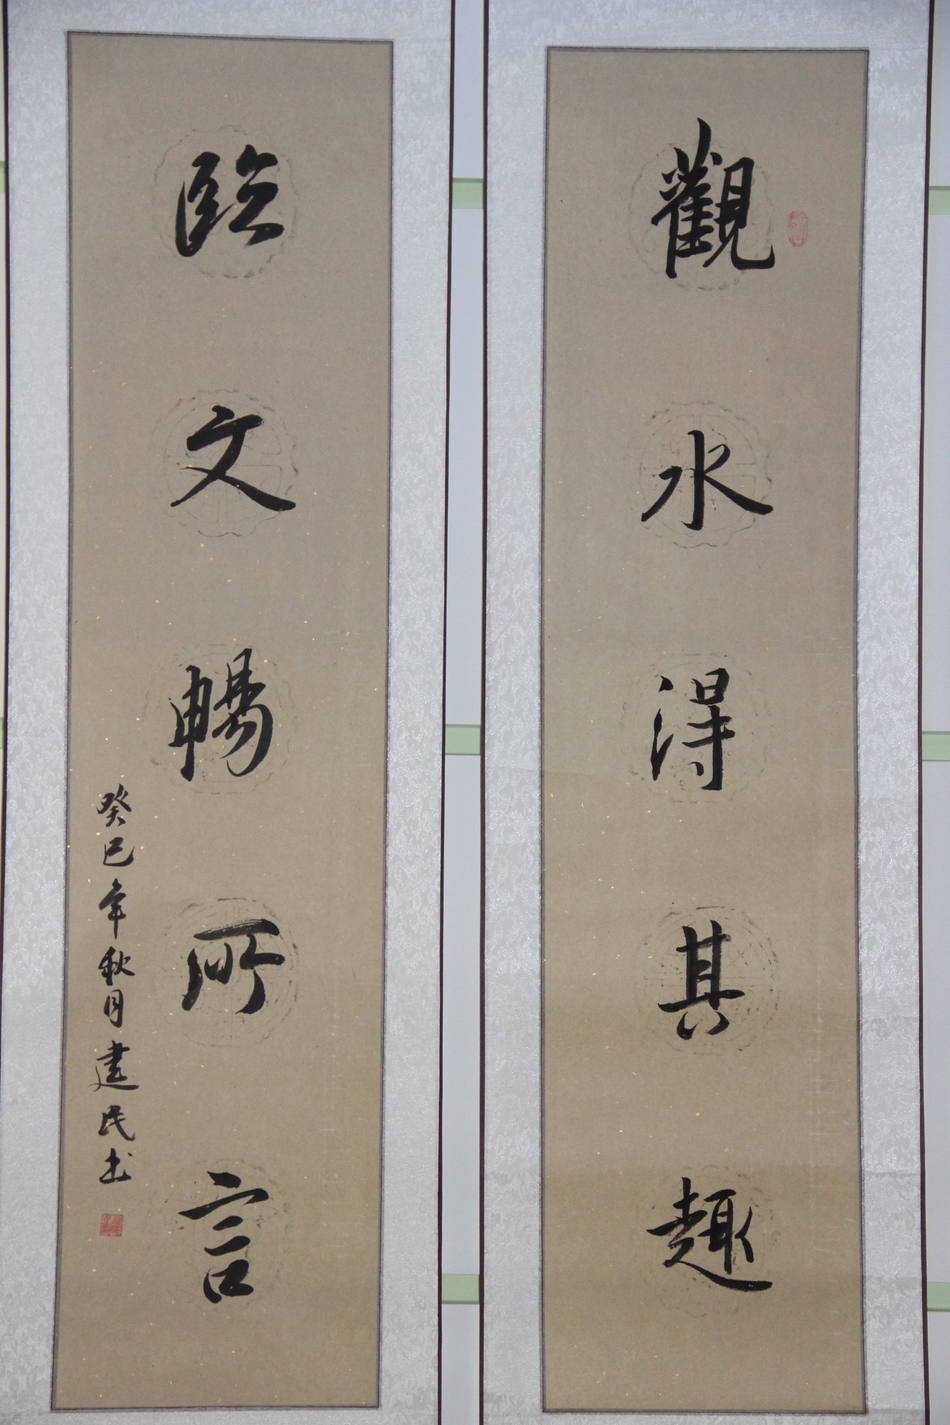 觀水得其趣
臨文暢所言
癸巳年秋月建民书